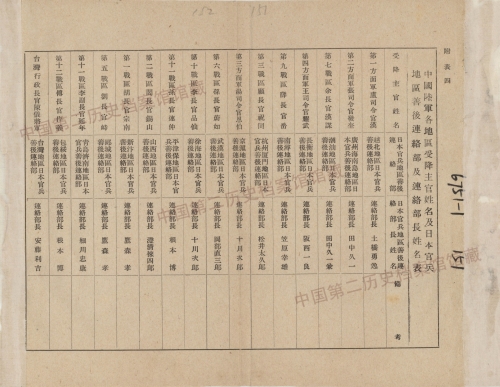 附表四
中國陸軍各地區受降主官姓名及日本官兵
地區善後連絡部及連絡部長姓名表
受降主官姓名 日本官兵地區善後連絡部 日本官兵地區善後連絡部部長姓名 備考
第一方面軍盧司令官漢 越北地區日本官兵善後連絡部 連絡部長 土橋勇逸
第二方面軍張司令官發奎 廣州海南島地區日本官兵善後連絡部 連絡部長 田中久一
第七戰區余長官漢謀 潮汕地區日本官兵善後連絡部 連絡部長 田中久一兼
第四方面軍王司令官耀武 長衡地區日本官兵善後連絡部 連絡部長 阪西一良
第九戰區薛長官岳 南潯地區日本官兵善後連絡部 連絡部長 笠原幸雄
第三戰區顧長官祝同 地區日本官兵善後連絡部 連絡部長 松井太久郎
第三方面軍湯司令官恩伯 京滬地區日本官兵善後連絡部 連絡部長 十川次郎
第六戰區孫長官蔚如 武漢地區日本官兵善後連絡部 連絡部長 岡部直三郎
第十戰區李長官品仙 徐海地區日本官兵善後連絡部 連絡部長 十川次郎
第十一戰區孫長官連仲 平津保地區日本官兵善後連絡部 連絡部長 根本 博
第二戰區閻長官錫山 山西地區日本官兵善後連絡部 連絡部長 澄田徠四郎
第一戰區胡長官宗南 新汴地區日本官兵善後連絡部 連絡部長 鷹森 孝
第五戰區劉長官峙 地區日本官兵善後連絡部 連絡部長 鷹森 孝
第十一戰區李副長官延年 青島濟南地區日本官兵善後連絡部 連絡部長 細川忠康
第十二戰區傅長官作義 包綏地區日本官兵善後連絡部 連絡部長 根本 博
台灣行政長官陳儀 台灣地區日本官兵善後連絡部 連絡部長 安藤利吉
152
151
651-1
151
中国第二历史档案馆馆藏
中国第二历史档案馆馆藏
中国第二历史档案馆馆藏